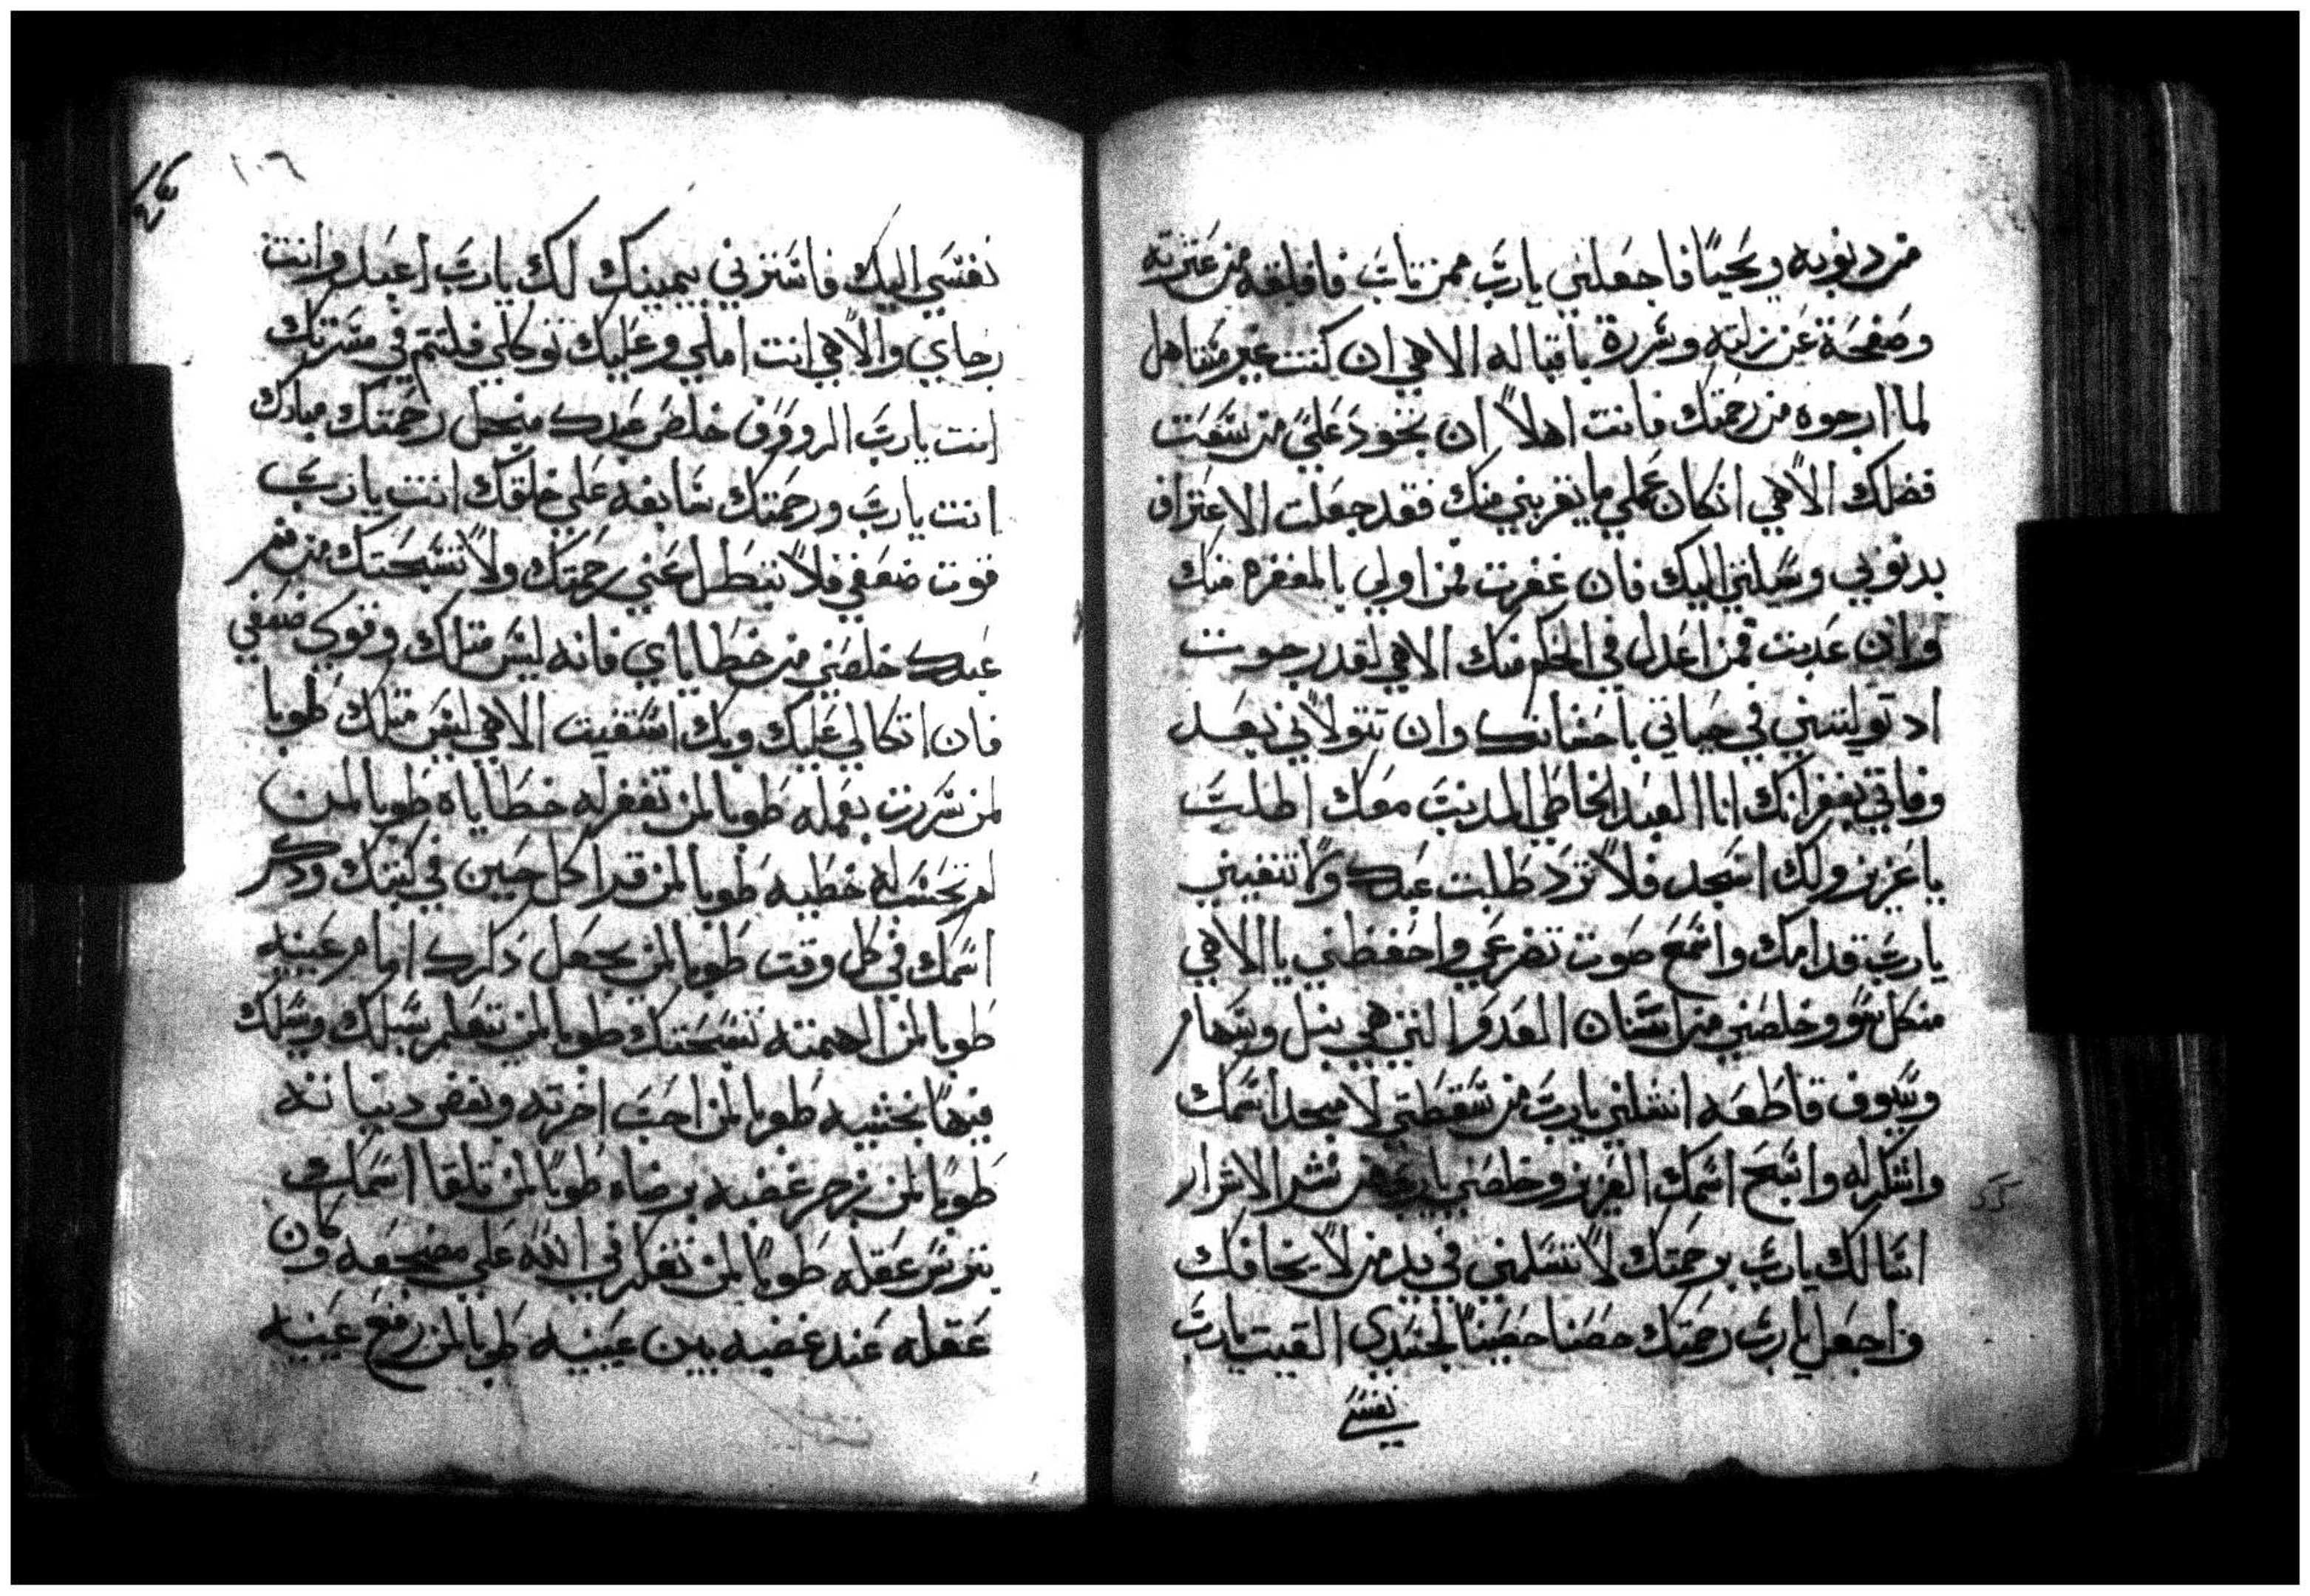 من دنوبه ويحيا فاجعلني يارب ممن تاب فاقلته من عثرته
وصفحة عن زلته وسررة باقباله الاهي ان كنت غير مستاهل
لما ارجوه من رحمتك فانت اهلاً ان تجود علي من سعت
فضلك الاهي ان كان عملي ما يقربني منك فقد جعلت الاعتراف
بدنوبي وسيلتي اليك فان غفرت فمن اولي بالمغفره منك
وان عدبت فمن اعدل في الحكم منك الاهي لقد رجوت
اد توليتني في حياتي باحسانك وان تتولاني بعد
وفاتي بغفرانك انا العبد الخاطي المدنب معك اطلب
يا عزيز ولك اسجد فلا ترد طلبت عبدك ولا تنفيني
يارب قدامك واسمع صوت تضرعي واحفظني يا الاهي
من كل سو وخلصني من اسنان العدو التي هي نبل وسهام
وسيوف قاطعه انشلني يارب من سقطتي لاسبح اسمك
واشكر له واسبح اسمك العزيز وخلصني يارب من شر الاشرار
اسالك يارب برحمتك لا تسلمني في يد من لا يخافك
واجعل يارب رحمتك حصنا حصيناً لجسدي القيت يارب
نفسي
١٠٦
نفسي اليك فاسترني بيمينك لك يارب اعبد وانت
رجاي والاهي انت املي وعليك توكلي فلتتم في مسرتك
انت يارب الرووف خلص عبدك منجل رحمتك مبارك
انت يارب ورحمتك سابغه علي خلقك انت يا رب
قوت ضعفي فلا تبطل عني رحمتك ولا تسبحتك من فم
عبدك خلصني من خطاياي فانه ليس متلك وقوي ضعفي
فان اتكالي عليك وبك استغيت الاهي ليس متلك طوبا
لمن سررت بعمله طوبا لمن تغفر له خطاياه طوبا لمن
لم تحسب له خطيه طوبا لمن قرا كل حين في كتبك ودكر
اسمك في كل وقت طوبا لمن يجعل دكرك امام عينيه
طوبا لمن الهمته تسبحتك طوبا لمن تتعلم سبلك وسلك
فيها بخشيه طوبا لمن احب اخرته وبغض دنياته
طوبا لمن زجر غضبه برضاه طوبا لمن تلقا اسمك
بترس عقله طوبا لمن تفكر في الله علي مضجعه وكان
عقله عند غضبه بين عينيه طوبا لمن رفع عينيه